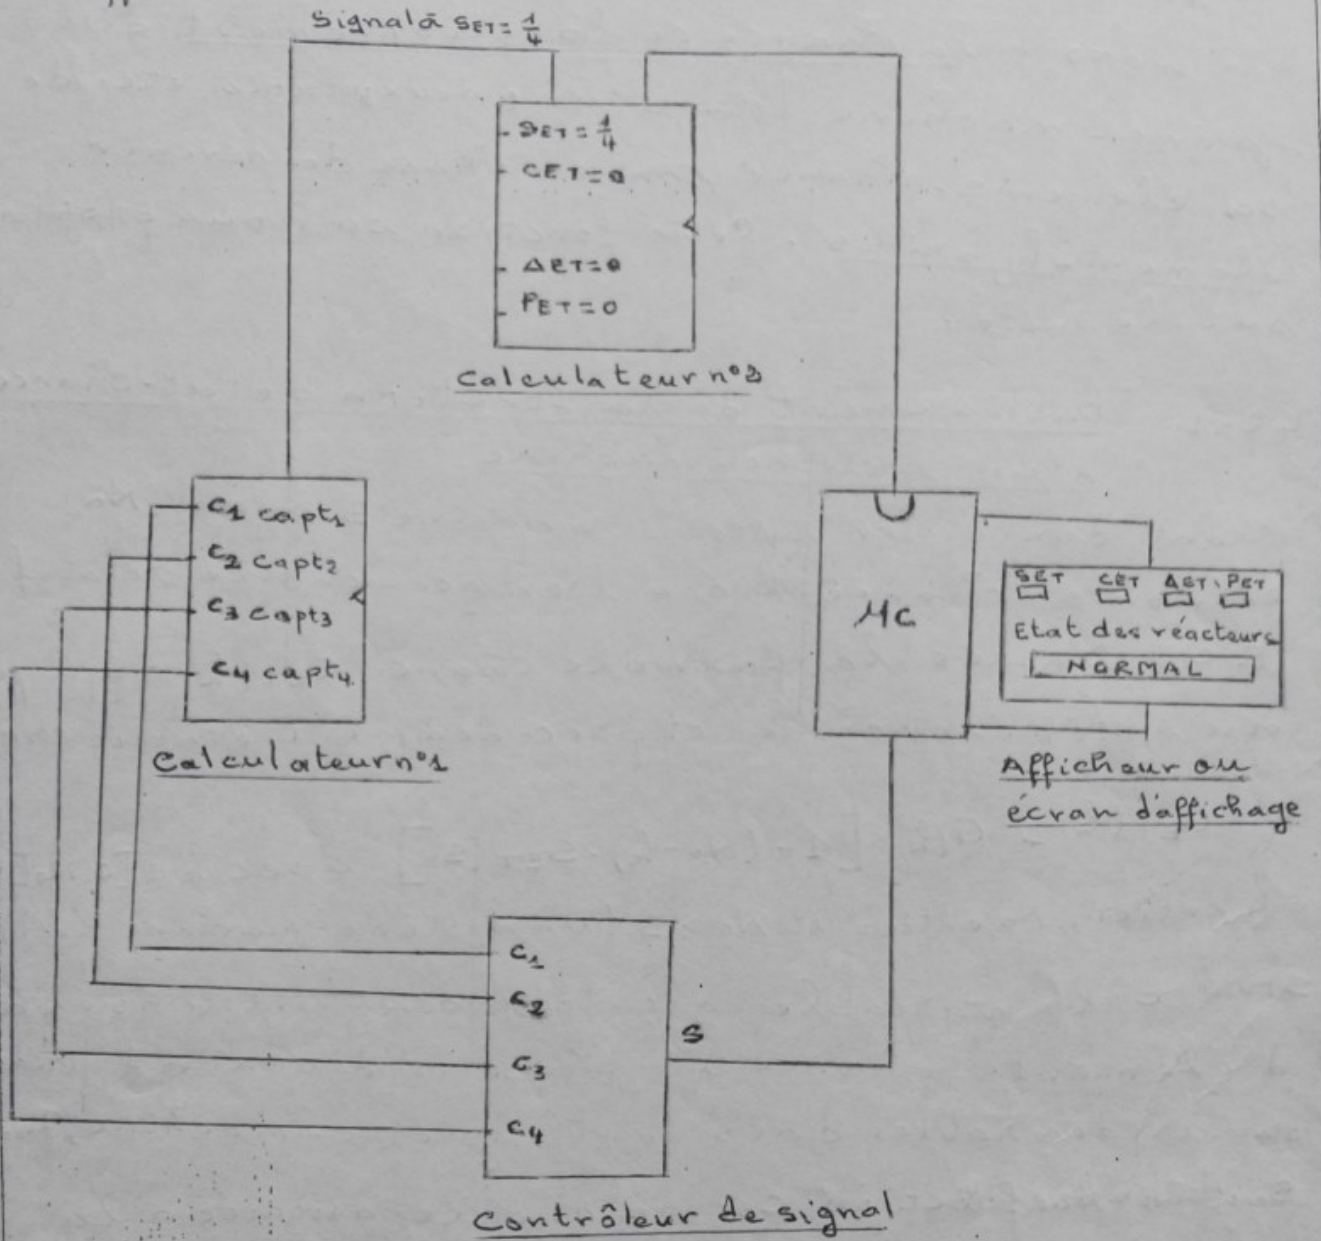 Signal à SET = 1/4
SET = 1/4
CET = 0
AET = 0
PET = 0
Calculateur n°2
C1 capt1
C2 capt2
C3 capt3
C4 capt4
Calculateur n°1
MC
SET CET AET PET
Etat des réacteurs
NORMAL
Afficheur ou
écran d'affichage
C1
C2
C3
C4
S
Contrôleur de signal